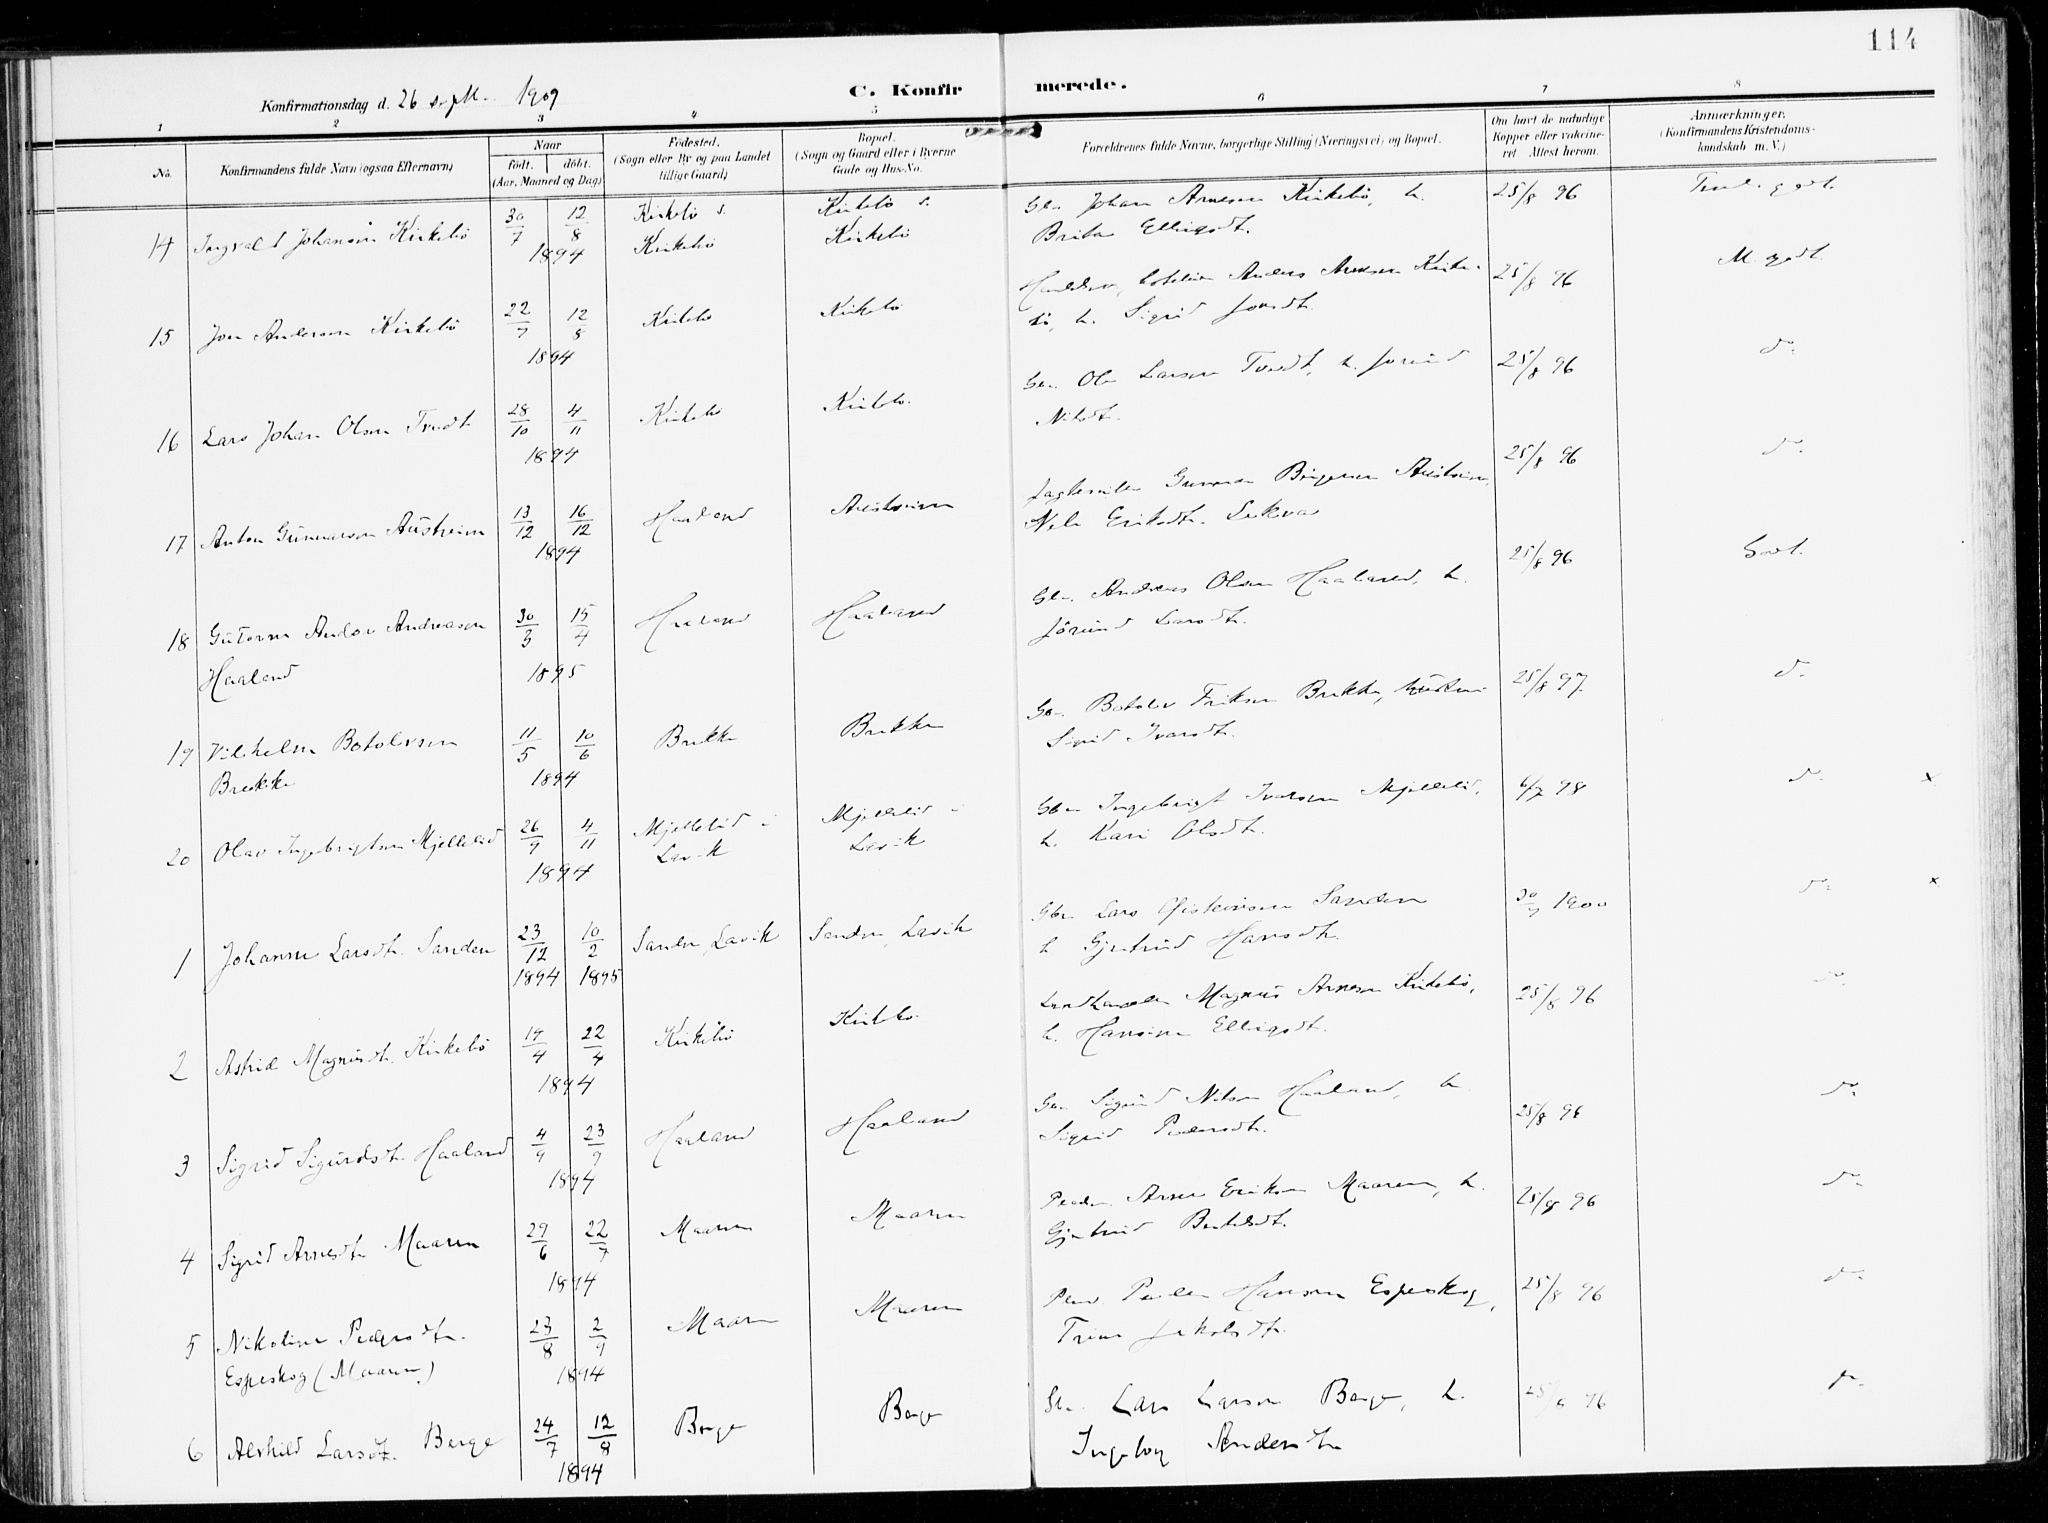 114
Konfirmationsdag d. 26 sept. 1909
C. Konfirmerede.
1 2 3 4 5 6 7 8
No.
Konfirmandens fulde Navn (ogsaa Efternavn)
Naar
födt. döbt.
(Aar, Maaned og Dag)
Födested.
(Sogn eller By og paa Landet
tillige Gaard)
Bopæl.
(Sogn og Gaard eller i Byerne
Gade og Hus-No.
Forældrenes fulde Navne, borgerlige Stilling (Næringsvei) og Bopæl.
Om havt de naturlige
Kopper eller vakcine-
ret Attest herom.
Anmærkninger.
(Konfirmandens Kristendoms-
kundskab m. V.)
14 Ingvald Johansen Kirkebö 30/7 12/8 1894 Kirkebö s. Kirkebö Kirkebö s. Kirkebö
Johan Arnesen Kirkebö, h. 25/8 96
Brita Ellingsdt.
15 Jon Andersen Kirkebö 22/7 12/8 1894 Kirkebö Kirkebö
Anders Arnesen Kirke- 25/8 96 M. godt.
bö, h. Sigrid Jonsdt.
16 Lars Johan Olsen Tvedt 28/10 4/11 1894 Kirkebö Kirkebö
Ole Larsen Tvedt, h. Jorund 25/8 96 do
Nilsdt.
17 Anton Gunnarson Austreim 13/12 16/12 1894 Haaland Austreim
Gunnar Austreim, 25/8 96 do
Eriksdt.
18 Gutorm Andor Andreasen 30/3 15/4 Haaland Haaland
Haaland 1895
Andreas Olsen Haaland, h. 25/8 96 Godt.
Jörund Larsdt.
19 Vilhelm Botolvsen 11/5 10/6 Brekke Brekke
Brekke 1894
Botolv Eriksen Brekke, 25/8 97 do
Sigrid Ivarsdt.
20 Olav Ingebrigtsen Mjellelid 26/9 4/11 1894 Mjellelid i Lavik Mjellelid i Lavik
Gbr. Ingebrigt Ivarsen Mjellelid, 6/7 98 do x
h. Kari Olsdt.
1 Johanne Larsdt. Sanden 23/12 1894 10/2 1895 Sanden, Lavik Sanden, Lavik
Gbr. Lars Öisteinsen Sanden 1900 do x
h. Gjertrud Hansdt.
2 Astrid Magnusdt. Kirkebö 22/4 1894 Kirkebö Kirkebö
Landhandler Magnus Arnesen Kirkebö, 25/8 96 do
h. Hansine Ellingsdt.
3 Sigrid Sigurdsdt. Haaland 4/9 23/9 1894 Haaland Haaland
Sigurd Nilsen Haaland, h. 25/8 96 do
Sigrid Pedersdt.
4 Sigrid Arnesdt. Maaren 29/6 22/7 1894 Maaren Maaren
Arne Eriksen Maaren, h. 25/8 96 do
Gjertrud
5 Nikoline Pedersdt. 23/8 2/9 Maaren Maaren
Espeskog (Maaren) 1894
Peder Hansen Espeskog, 25/8 96 do
Trine Jakobsdt.
6 Alvhild Larsdt. Berge 24/7 12/8 1894 Berge Berge
Lars Larsen Berge, h. 25/8 96 do
Ingeborg Andersdt.